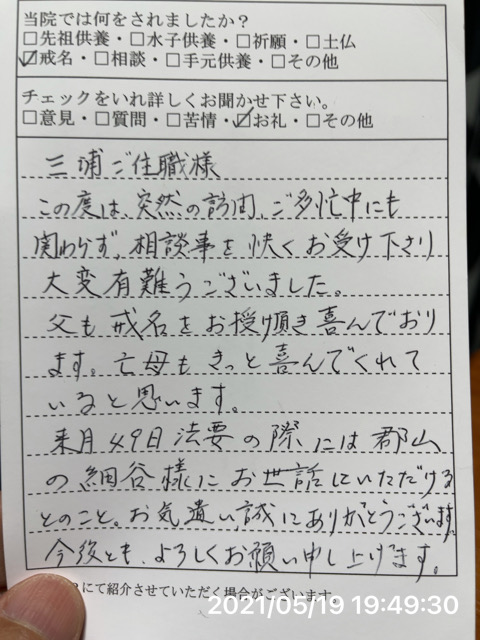 当院では何をされましたか？
□先祖供養・□水子供養・□祈願・□土仏
☑戒名・□相談・□手元供養・□その他
チェックをいれ詳しくお聞かせ下さい。
□意見・□質問・□苦情・☑お礼・□その他
三浦ご住職様
この度は、突然の訪問、ご多忙中にも
関わらず、相談事を快くお受け下さり
大変有難うございました。
父も戒名をお授け頂き喜んでおり
ます。亡母もきっと喜んでくれて
いると思います。
来月49日法要の際には郡山
の細谷様にお世話していただける
とのこと。お気遣い誠にありがとうございます。
今後とも、よろしくお願い申し上げます。
にて紹介させていただく場合がございます。
2021/05/19 19:49:30